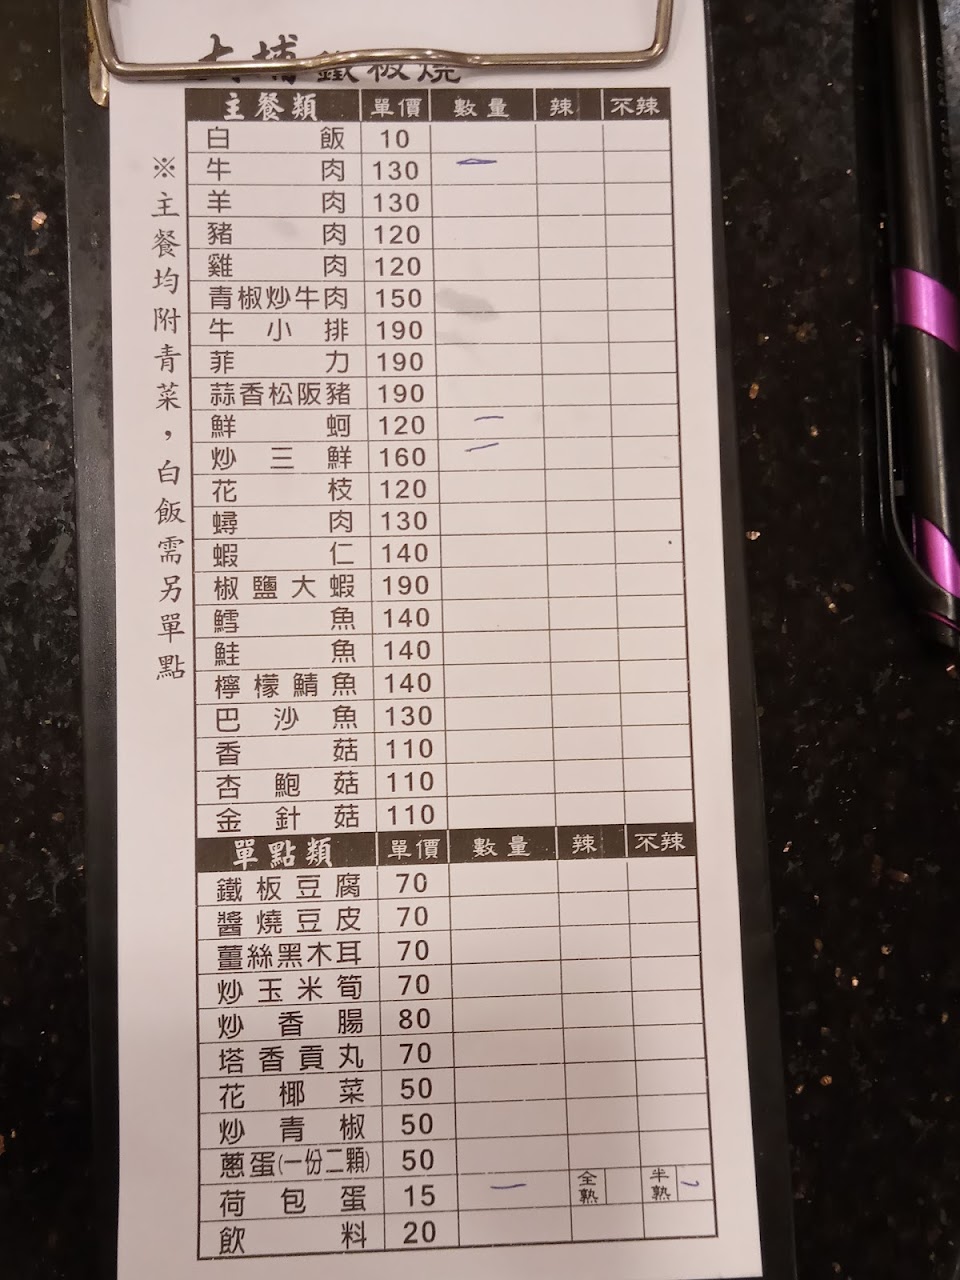 大埔鐵板燒
主餐類 單價 數量 辣 不辣
白飯 10
牛肉 130 一
羊肉 130
豬肉 120
雞肉 120
青椒炒牛肉 150
牛小排 190
菲力 190
蒜香松阪豬 190
鮮蚵 120 一
炒三鮮 160 一
花枝 120
蟳肉 130
蝦仁 140
椒鹽大蝦 190
鱈魚 140
鮭魚 140
檸檬鯖魚 140
巴沙魚 130
香菇 110
杏鮑菇 110
金針菇 110
單點類 單價 數量 辣 不辣
鐵板豆腐 70
醬燒豆皮 70
薑絲黑木耳 70
炒玉米筍 70
炒香腸 80
塔香貢丸 70
花椰菜 50
炒青椒 50
蔥蛋(一份二顆) 50
荷包蛋 15 一 全熟 半熟
飲料 20
※主餐均附青菜，白飯需另單點